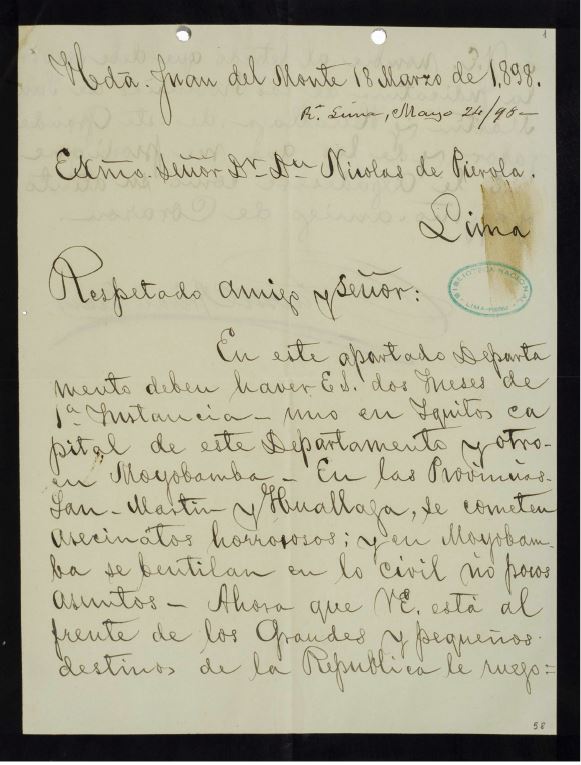 1
Hda. Juan del Monte 18 Marzo de 1,898.
R. Lima, Mayo 24/98-
Exmo. Señor Dr. Dn Nicolas de Pierola.
Lima
Respetado amigo y Señor:
BIBLIOTECA NACIONAL
LIMA-PERU
En este apartado Departa
mento deben haver dos de
1ª Instancia - uno en Yquitos ca
pital de este Departamento y otro-
en Moyobamba - En las Provincias-
San-Martin y Huallaga, se cometen
asecinatos horrorosos; y en Moyobam-
ba se bentilan en lo civil no pocos
asuntos - Ahora que VE. está al
frente de los Grandes y pequeños-
destinos de la Republica le ruego=
58